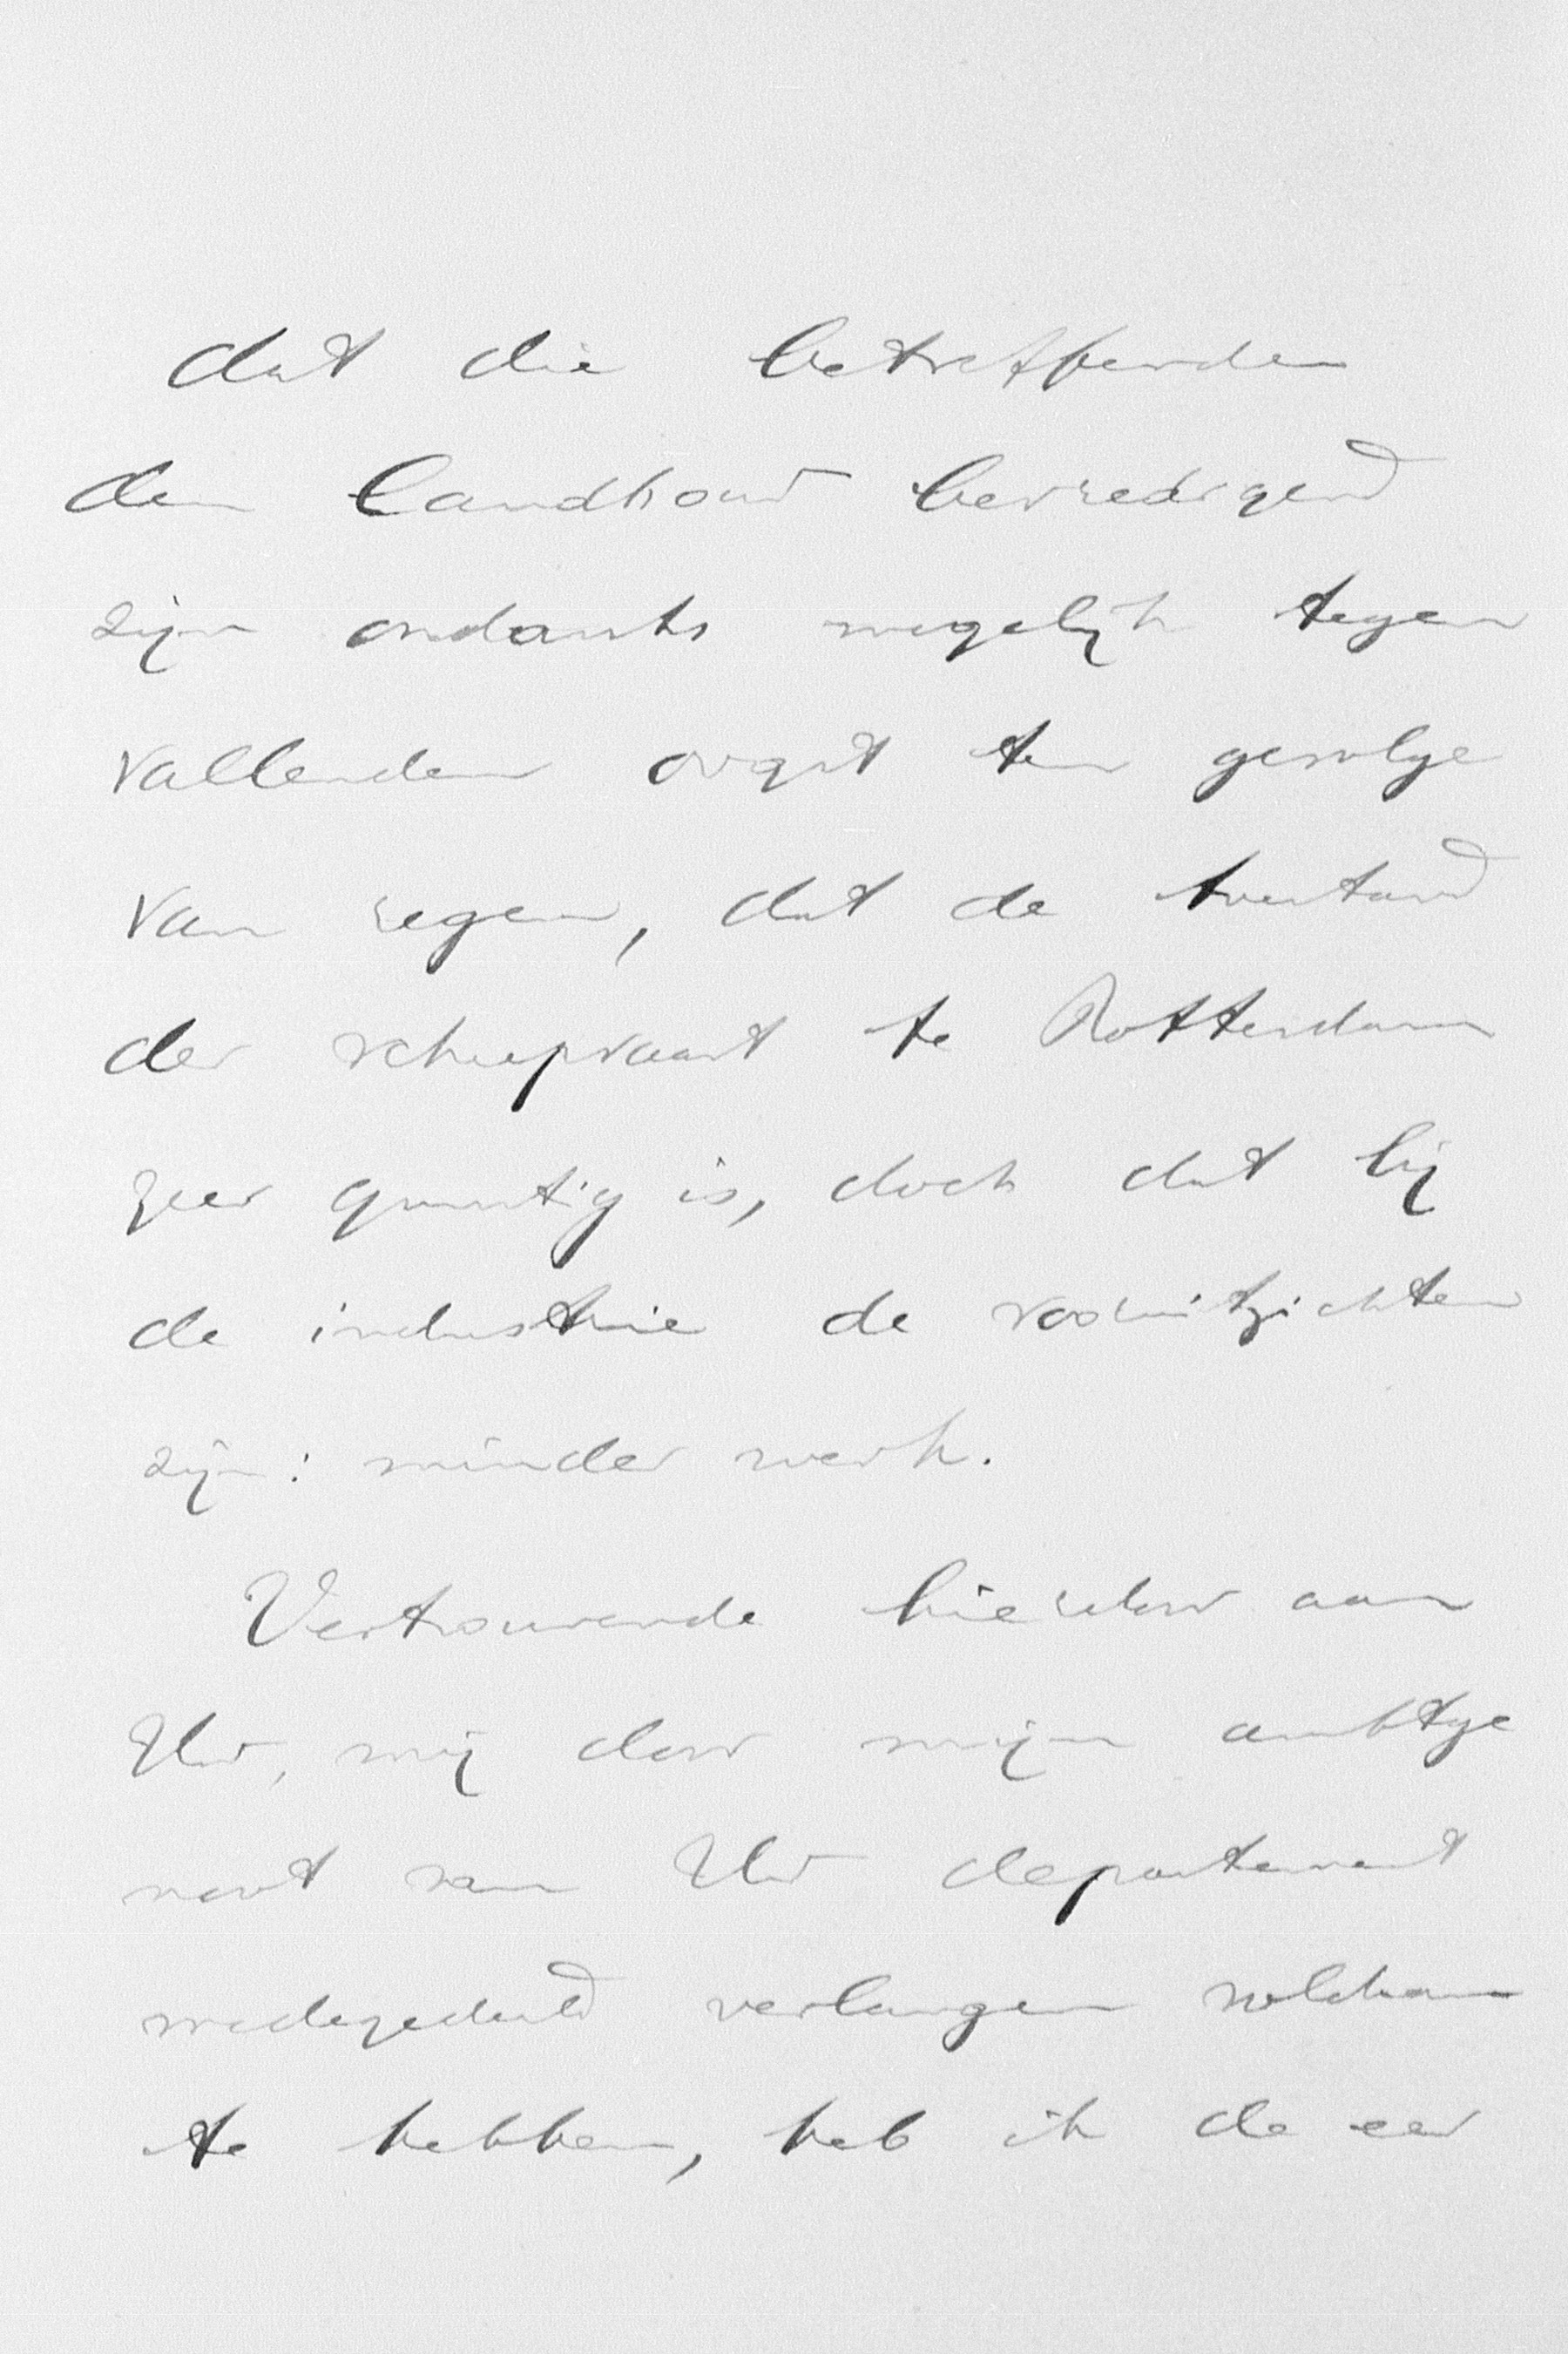 dat die betreffende
den landbouw bevredigend
zijn ondanks mogelijk tegen
vallenden oogst ten gevolge
van regen, dat de toestand
der scheepvaart te Rotterdam
zeer gunstig is, doch dat bij
de industrie de vooruitzichten
zijn: minder werk.
Vertrouwende hierdoor aan
Uw, mij door mijn ambtge
noot van Uw departement
medegedeeld verlangen voldaan
te hebben, heb ik de eer